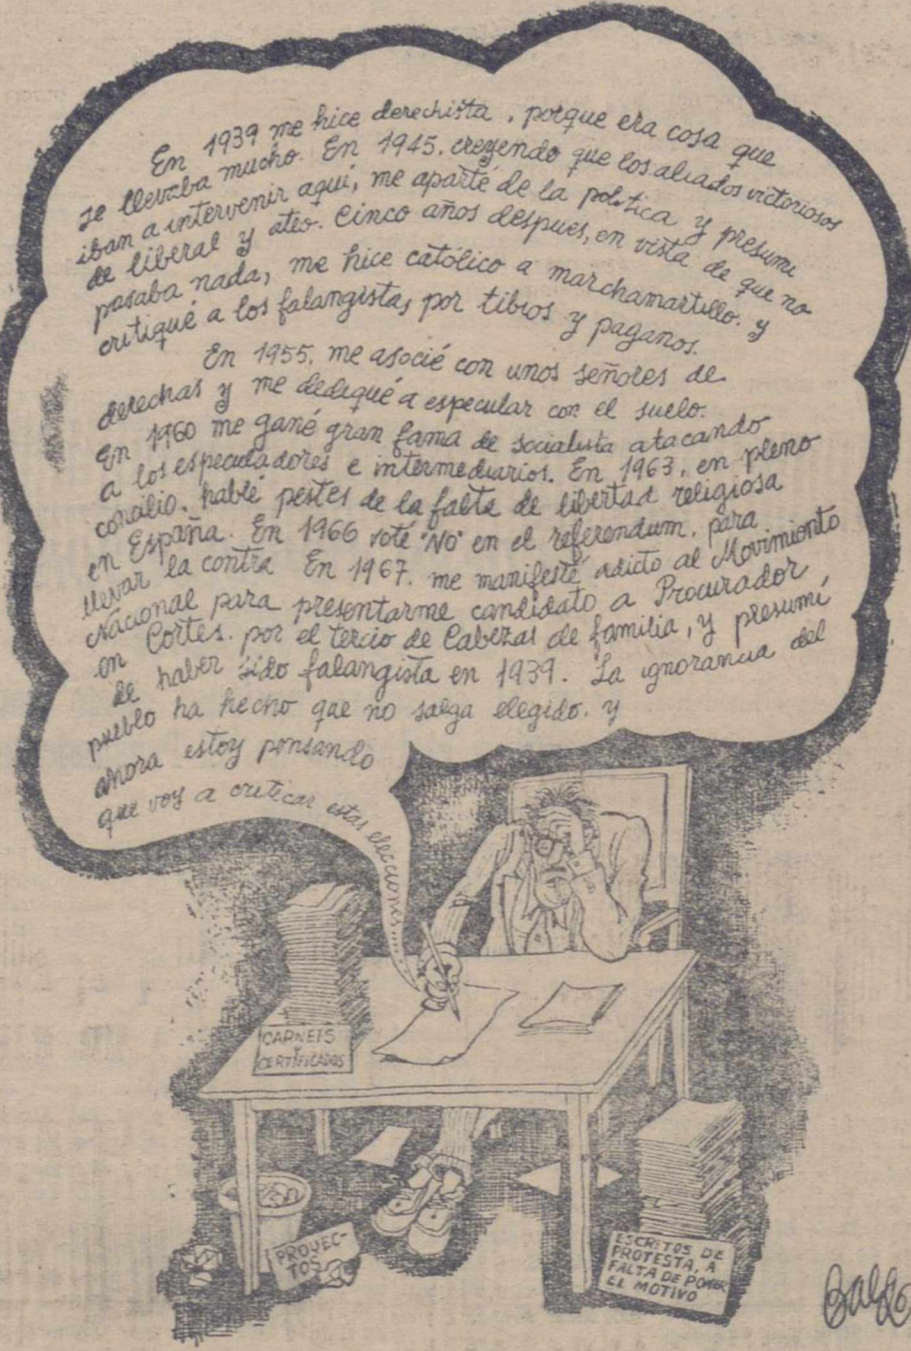 En 1939 me hice derechista, porque era cosa que
se llevaba mucho. En 1945, creyendo que los aliados victoriosos
iban a intervenir aquí, me aparté de la política y presumí
de liberal y ateo. Cinco años despues, en vista de que no
pasaba nada, me hice católico a marchamartillo, y
critiqué a los falangistas por tibios y paganos.
En 1955, me asocié con unos señores de
derechas y me dediqué a especular con el suelo.
En 1960 me gané gran fama de socialista atacando
a los especuladores e intermediarios. En 1963, en pleno
concilio, hablé pestes de la falta de libertad religiosa
en España. En 1966 voté "No" en el referendum, para
llevar la contra. En 1967, me manifesté adicto al Movimiento
Nacional para presentarme candidato a Procurador
en Cortes, por el tercio de Cabezas de familia, y presumí
de haber sido falangista en 1939. La ignorancia del
pueblo ha hecho que no salga elegido, y
ahora estoy pensando
que voy a criticar estas elecciones......
CARNETS
Y
CERTIFICADOS
PROYEC-
TOS
ESCRITOS DE
PROTESTA, A
FALTA DE PONER
EL MOTIVO